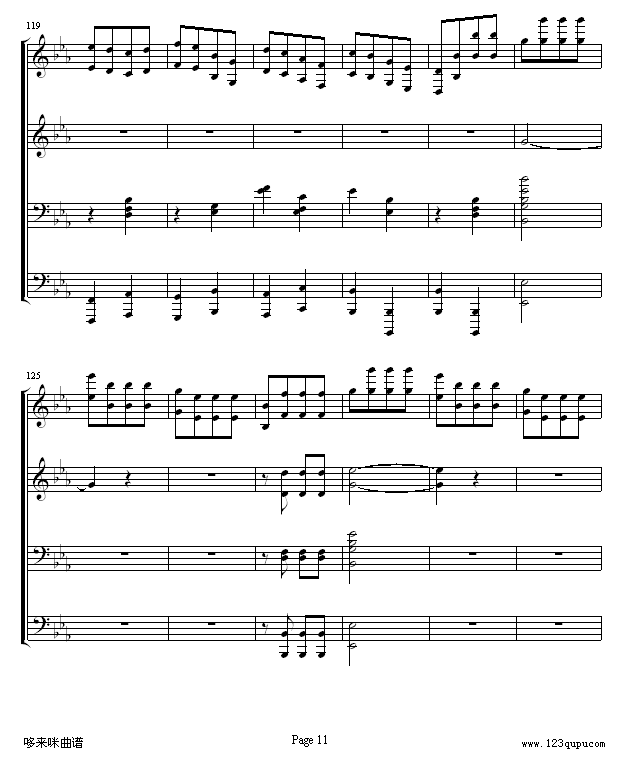 119
125
哆来咪曲谱
Page 11
www.123qupu.com